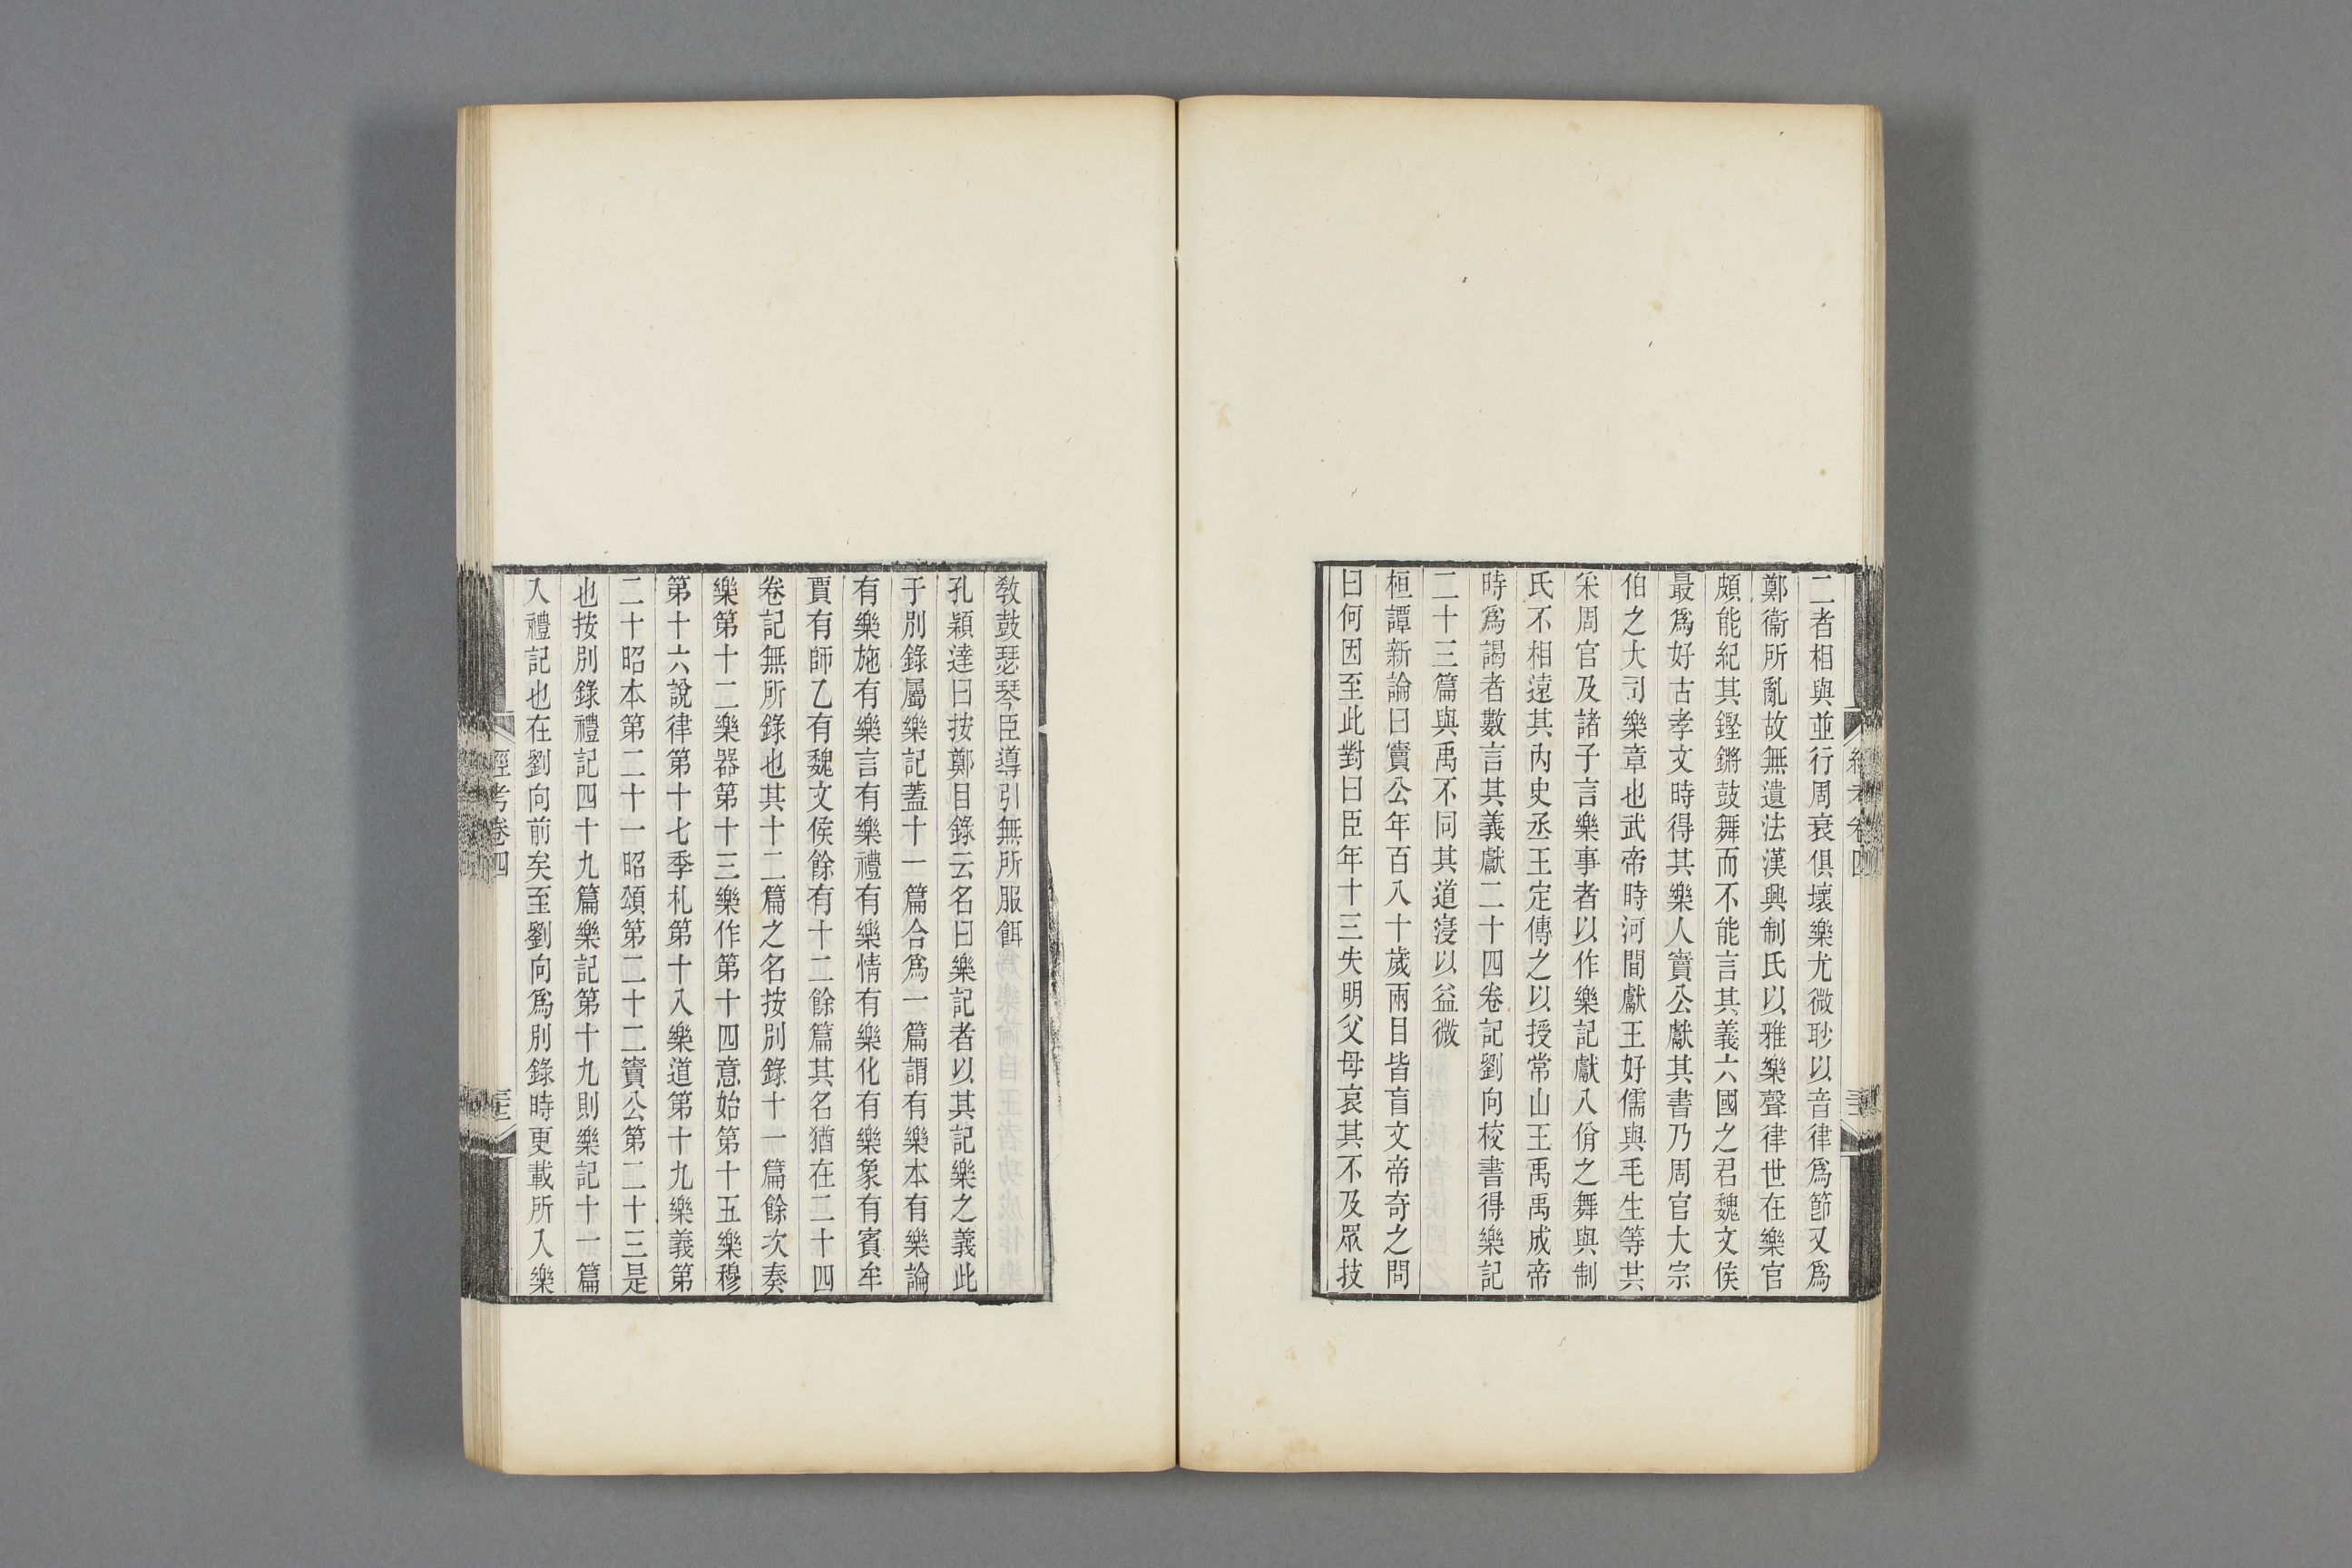 二者相與並行周衰俱壞樂尤微眇以音律爲節又爲
鄭衞所亂故無遺法漢興制氏以雅樂聲律世在樂官
頗能紀其鏗鏘鼓舞而不能言其義六國之君魏文侯
最爲好古孝文時得其樂人竇公獻其書乃周官大宗
伯之大司樂章也武帝時河間獻王好儒與毛生等共
采周官及諸子言樂事者以作樂記獻八佾之舞與制
氏不相遠其內史丞王定傳之以授常山王禹禹成帝
時爲謁者數言其義獻二十四卷記劉向校書得樂記
二十三篇與禹不同其道寖以益微
桓譚新論曰竇公年百八十歲兩目皆盲文帝奇之問
曰何因至此對曰臣年十三失明父母哀其不及眾技
敎鼓瑟琴臣導引無所服餌
孔穎達曰按鄭目錄云名曰樂記者以其記樂之義此
于別錄屬樂記蓋十一篇合爲一篇謂有樂本有樂論
有樂施有樂言有樂禮有樂情有樂化有樂象有賓牟
賈有師乙有魏文侯餘有十二餘篇其名猶在二十四
卷記無所錄也其十二篇之名按別錄十一篇餘次奏
樂第十二樂器第十三樂作第十四意始第十五樂穆
第十六說律第十七季札第十八樂道第十九樂義第
二十昭本第二十一昭頌第二十二竇公第二十三是
也按別錄禮記四十九篇樂記第十九則樂記十一篇
入禮記也在劉向前矣至劉向爲別錄時更載所入樂
經考卷四